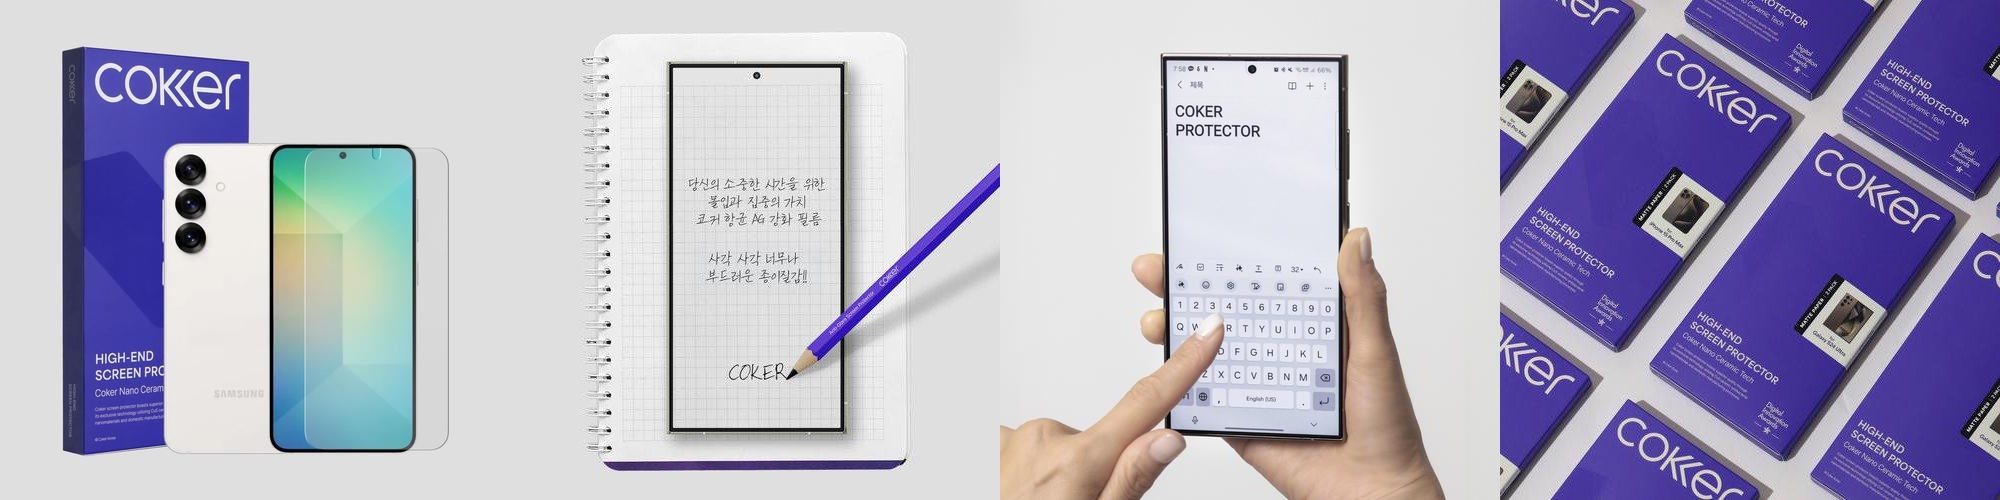 COKER
COKER
HIGH-END
SCREEN PRO
Coker Nano Ceram
© Coker Korea
SAMSUNG
당신의 소중한 시간을 위한
몰입과 집중의 가치
코커 항균 AG 강화 필름
사각 사각 너무나
부드러운 종이질감!!
COKER
Anti-Glare Screen Protector COKER
7:58 66%
제목
COKER
PROTECTOR
32
1 2 3 4 5 6 7 8 9 0
Q W R T Y U I O P
D F G H J K L
Z X C V B N M
English (US)
COKER
HIGH-END
SCREEN PROTECTOR
Coker Nano Ceramic Tech
MATTE PAPER | 2 PACK
for
iPhone 15 Pro Max
Digital
Innovation
Awards
COKER
HIGH-END
SCREEN PROTECTOR
Coker Nano Ceramic Tech
MATTE PAPER | 2 PACK
for
Galaxy S24 Ultra
Digital
Innovation
Awards
HIGH-END
SCREEN PROTECTOR
Coker Nano Ceramic Tech
Digital
Innovation
Awards
HIGH-END
SCREEN PROTECTOR
Coker Nano Ceramic Tech
COKER